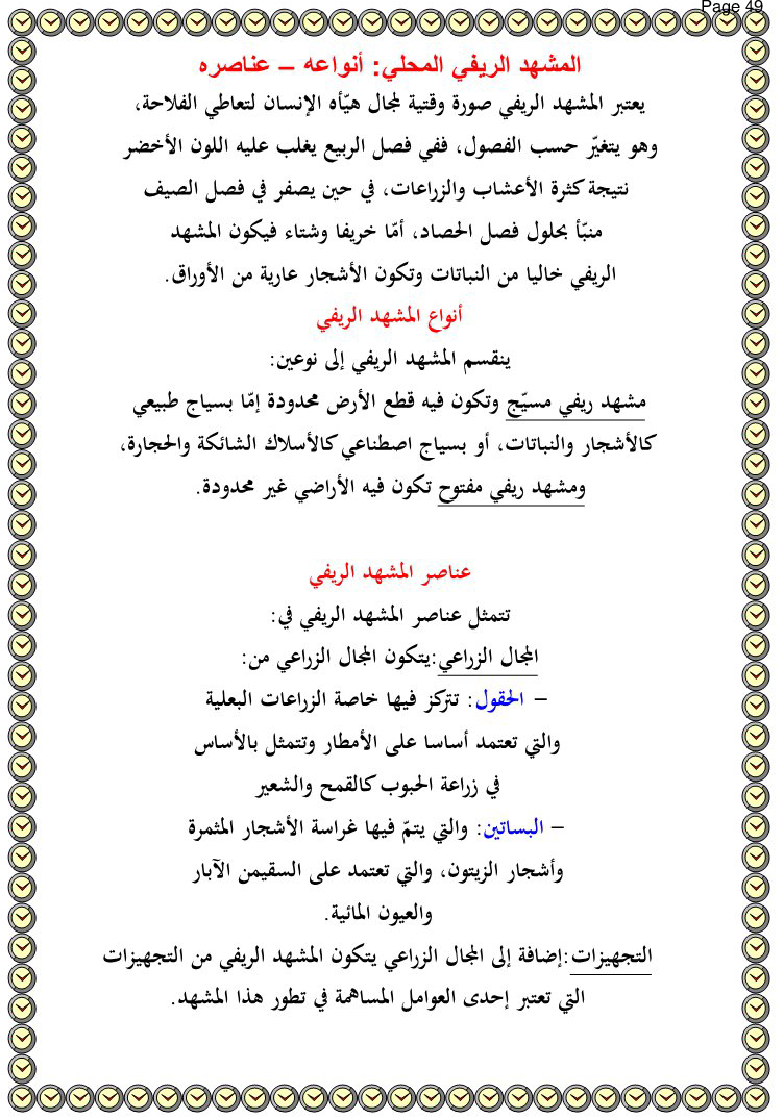 Page 49
المشهد الريفي المحلي: أنواعه – عناصره
يعتبر المشهد الريفي صورة وقتية لمجال هيّأه الإنسان لتعاطي الفلاحة،
وهو يتغيّر حسب الفصول، ففي فصل الربيع يغلب عليه اللون الأخضر
نتيجة كثرة الأعشاب والزراعات، في حين يصفر في فصل الصيف
منبّأ بحلول فصل الحصاد، أمّا خريفا وشتاء فيكون المشهد
الريفي خاليا من النباتات وتكون الأشجار عارية من الأوراق.
أنواع المشهد الريفي
ينقسم المشهد الريفي إلى نوعين:
مشهد ريفي مسيّج وتكون فيه قطع الأرض محدودة إمّا بسياج طبيعي
كالأشجار والنباتات، أو بسياج اصطناعي كالأسلاك الشائكة والحجارة،
ومشهد ريفي مفتوح تكون فيه الأراضي غير محدودة.
عناصر المشهد الريفي
تتمثل عناصر المشهد الريفي في:
المجال الزراعي:يتكون المجال الزراعي من:
– الحقول: تتركز فيها خاصة الزراعات البعلية
والتي تعتمد أساسا على الأمطار وتتمثل بالأساس
في زراعة الحبوب كالقمح والشعير
– البساتين: والتي يتمّ فيها غراسة الأشجار المثمرة
وأشجار الزيتون، والتي تعتمد على السقيمن الآبار
والعيون المائية.
التجهيزات:إضافة إلى المجال الزراعي يتكون المشهد الريفي من التجهيزات
التي تعتبر إحدى العوامل المساهمة في تطور هذا المشهد.